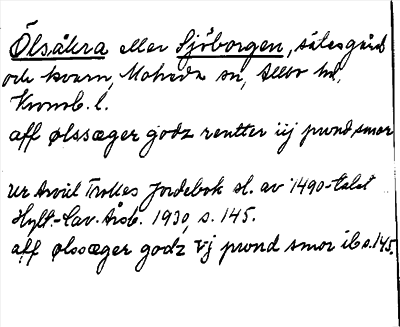 Ölsåkra eller Sjöborgen, sätesgård
och kvarn, Moheda sn, Allbo hd,
Kronob. l.
aff ølssæger godz rentter iij pund smör
Ur Arvid Trolles Jordebok sl. av 1490-talet
Hylt.-Cav. Årsb. 1930, s. 145.
aff ølssæger godz vj pund smør ib s. 145.